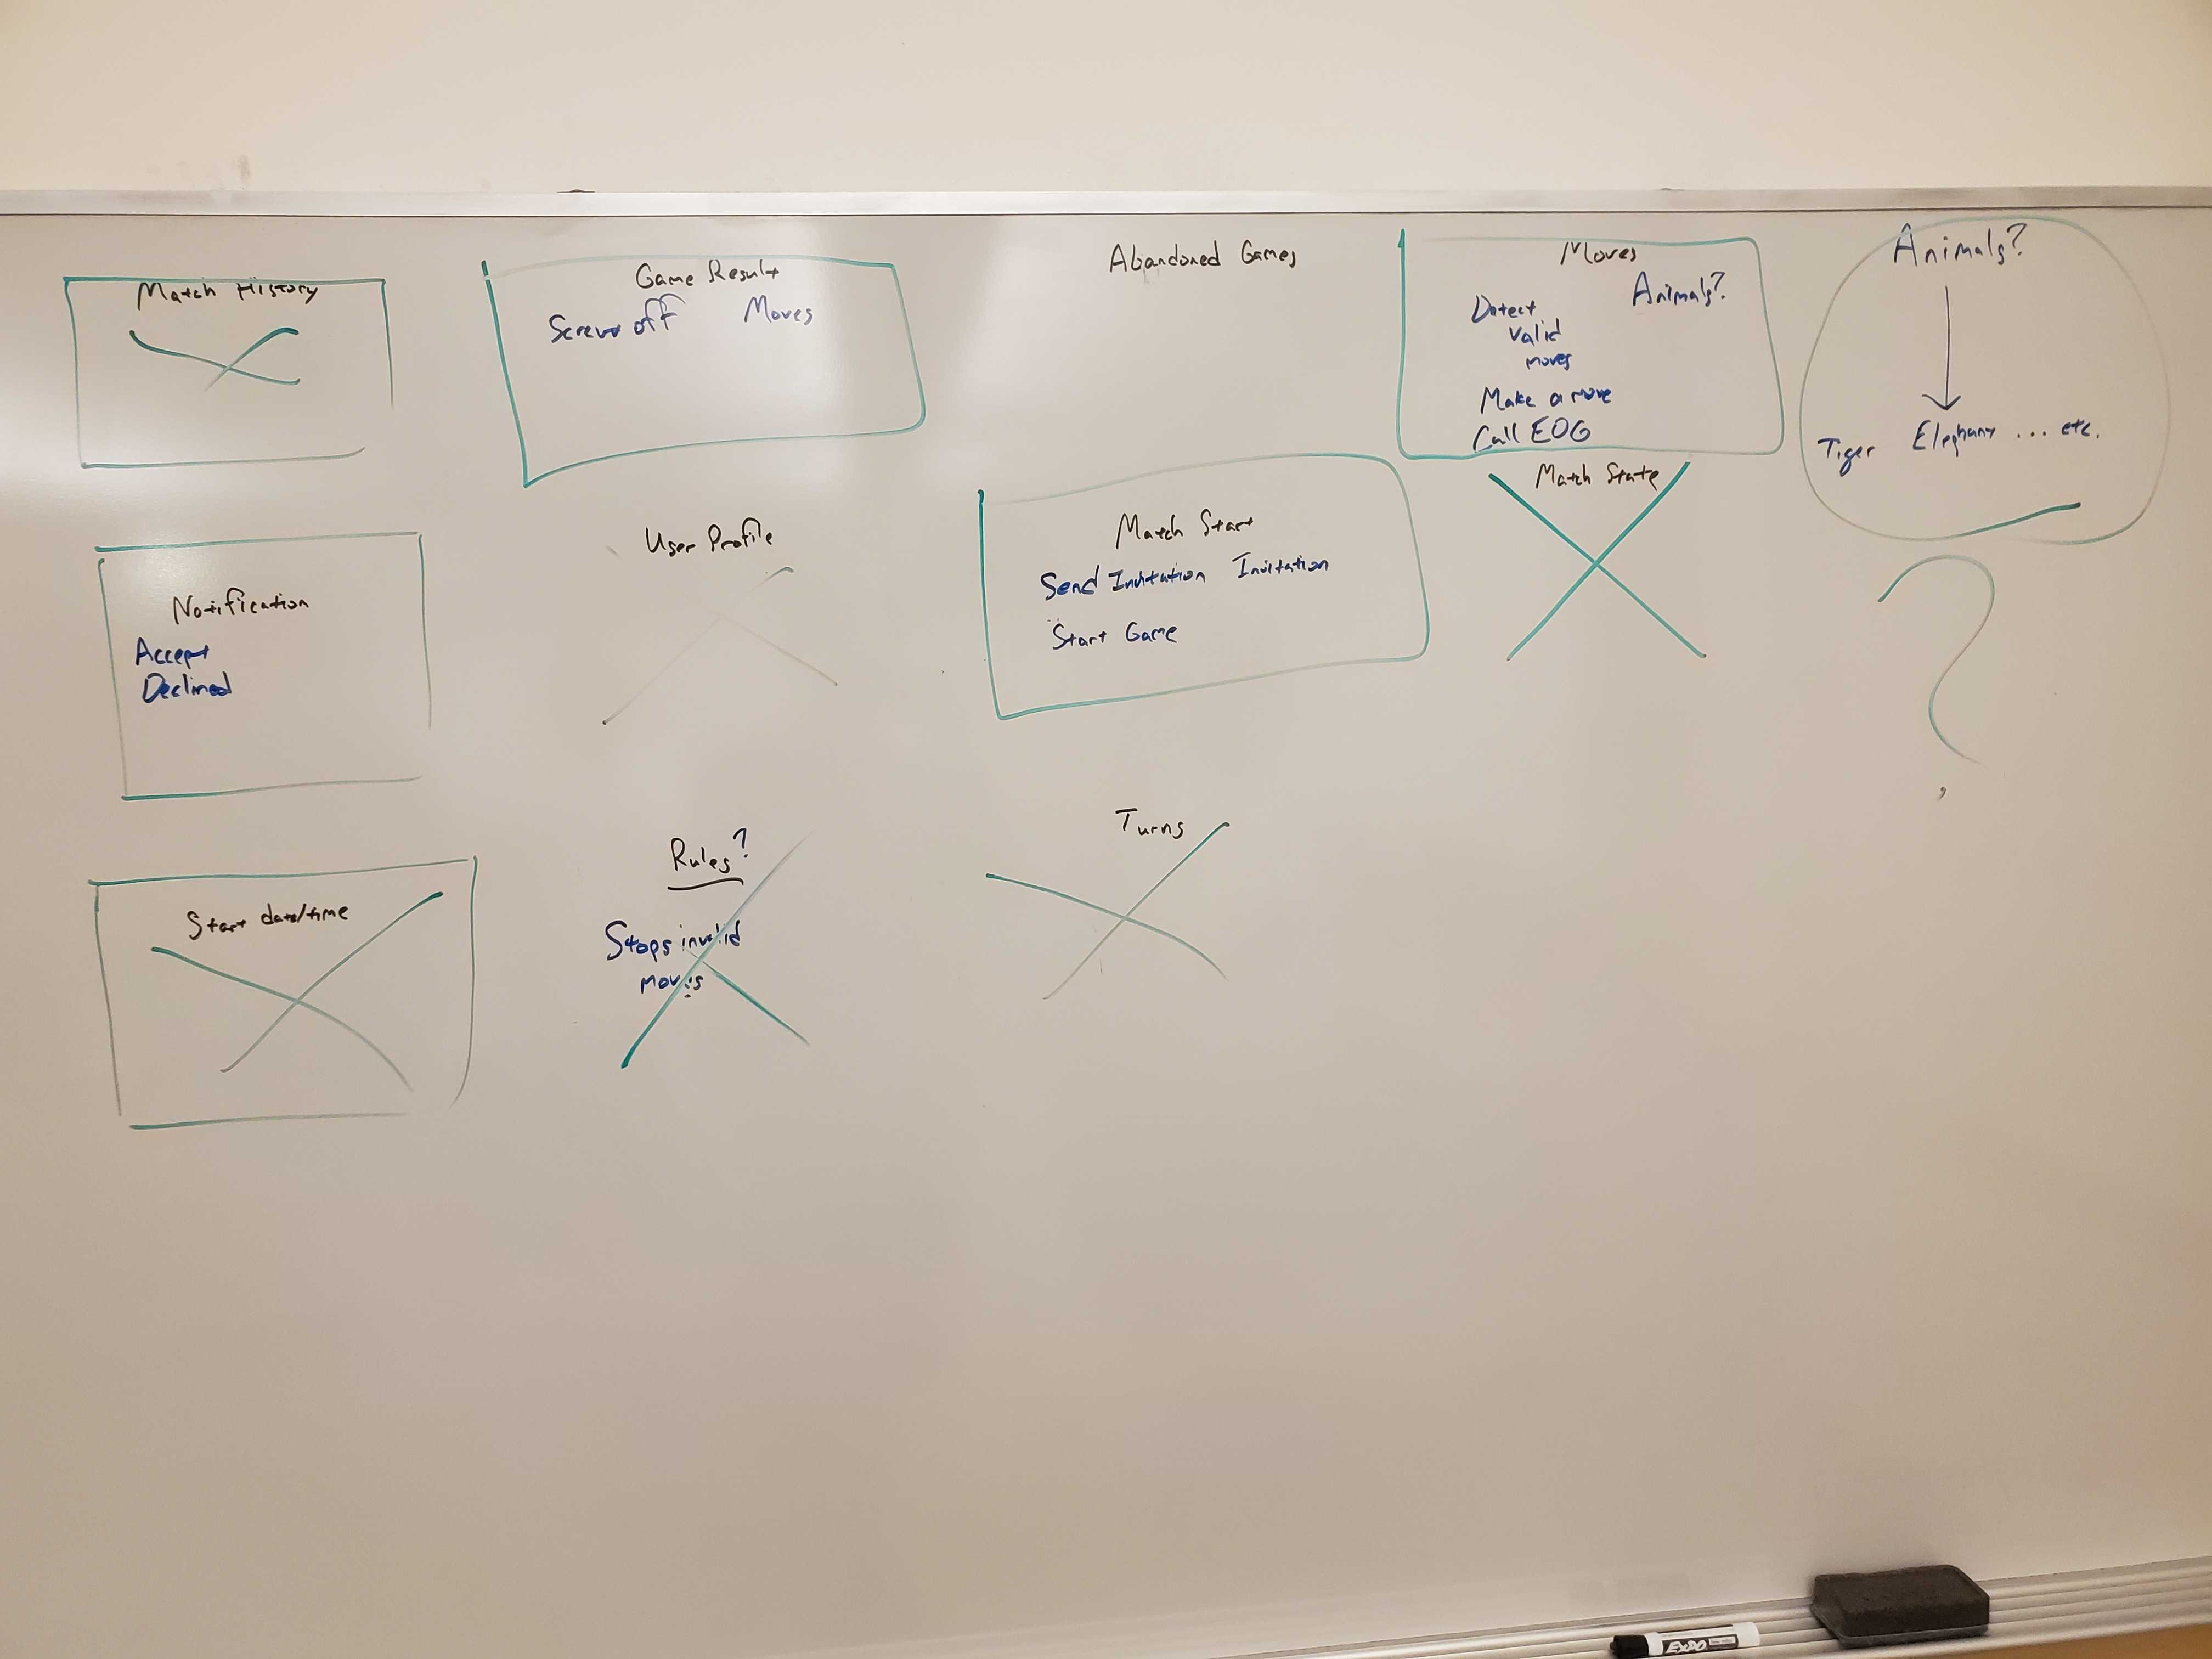 Match History
Game Result
Screw off Moves
Abandoned Games
Moves
Animals?
Detect
valid
moves
Make a move
Call EOG
Animals?
Tiger Elephant ... etc.
Notification
Accept
Declined
User Profile
Match Start
Send Invitation Invitation
Start Game
Match State
?
Start date/time
Rules?
Stops invalid
moves
Turns
EXPO